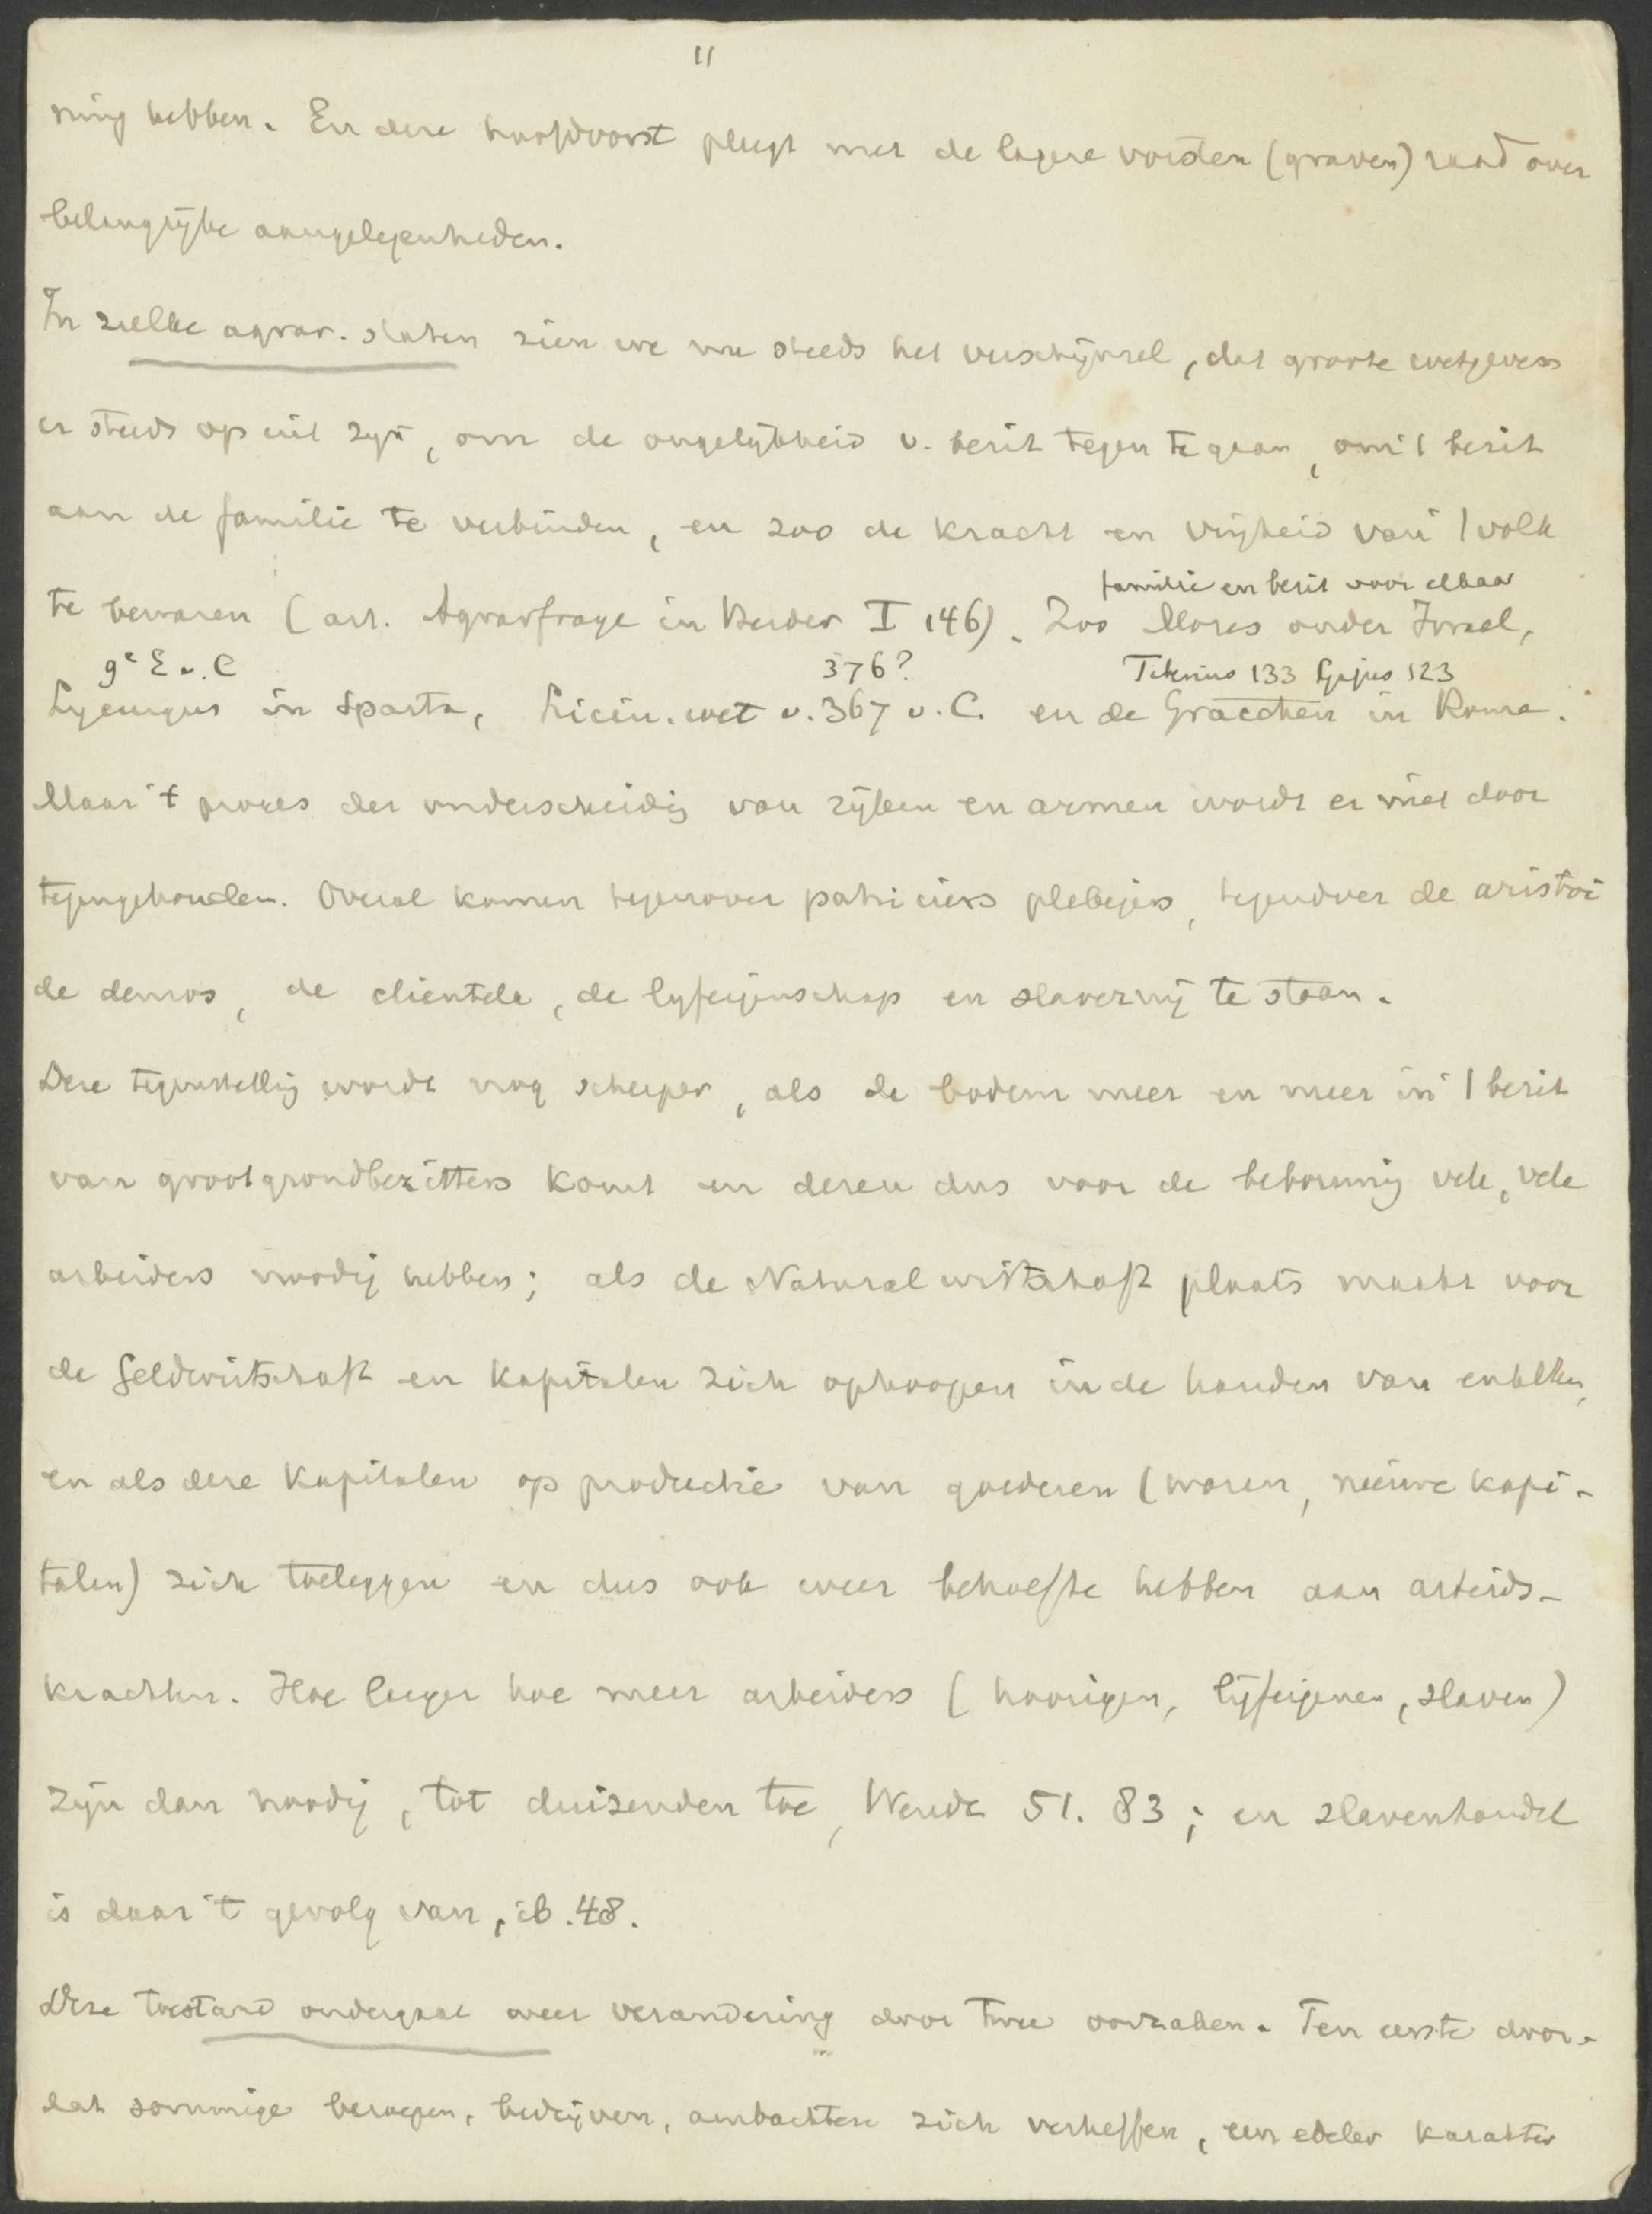 11
ning hebben. En deze hoofdvorst pleegt met de lagere vorsten (graven) raad over
belangrijke aangelegenheden.
In zulke agrar. staten zien we nu steeds het verschijnsel, dat groote wetgevers
er steeds op uit zijn, om de ongelijkheid v. bezit tegen te gaan, om 't bezit
aan de familie te verbinden, en zoo de kracht en vrijheid van 't volk
familie en bezit voor elkaar
te bewaren (art. Agrarfrage in Herder I 146). Zoo Mozes onder Israel,
9e E v. C 376? Tiberius 133 Gajus 123
Lycurgus in Sparta, Licin. wet v. 367 v. C. en de Gracchen in Rome.
Maar 't proces der onderscheidig van rijken en armen wordt er niet door
tegengehouden. Overal komen tegenover patriciers plebejers, tegenover de aristoi
de demos, de clientele, de lyfeigenschap en slavernij te staan.
Deze tegenstellig wordt nog scherper, als de bodem meer en meer in 't bezit
van grootgrondbezitters komt en dezen dus voor de bebouwing vele, vele
arbeiders noodig hebben; als de Naturalwirtschaft plaats maakt voor
de Geldwirtschaft en kapitalen zich ophoopen in de handen van enkelen,
en als deze kapitalen op productie van goederen (waren, nieuwe kapi-
talen) zich toeleggen en dus ook weer behoefte hebben aan arbeids-
krachten. Hoe langer hoe meer arbeiders (hoorigen, lijfeigenen, slaven)
zijn dan noodig, tot duizenden toe, 51. 83; en slavenhandel
is daar 't gevolg van, ib. 48.
Deze toestand ondergaat weer verandering door twee oorzaken. Ten eerste door-
dat sommige beroepen, bedrijven, ambachten zich verheffen, een edeler karakter